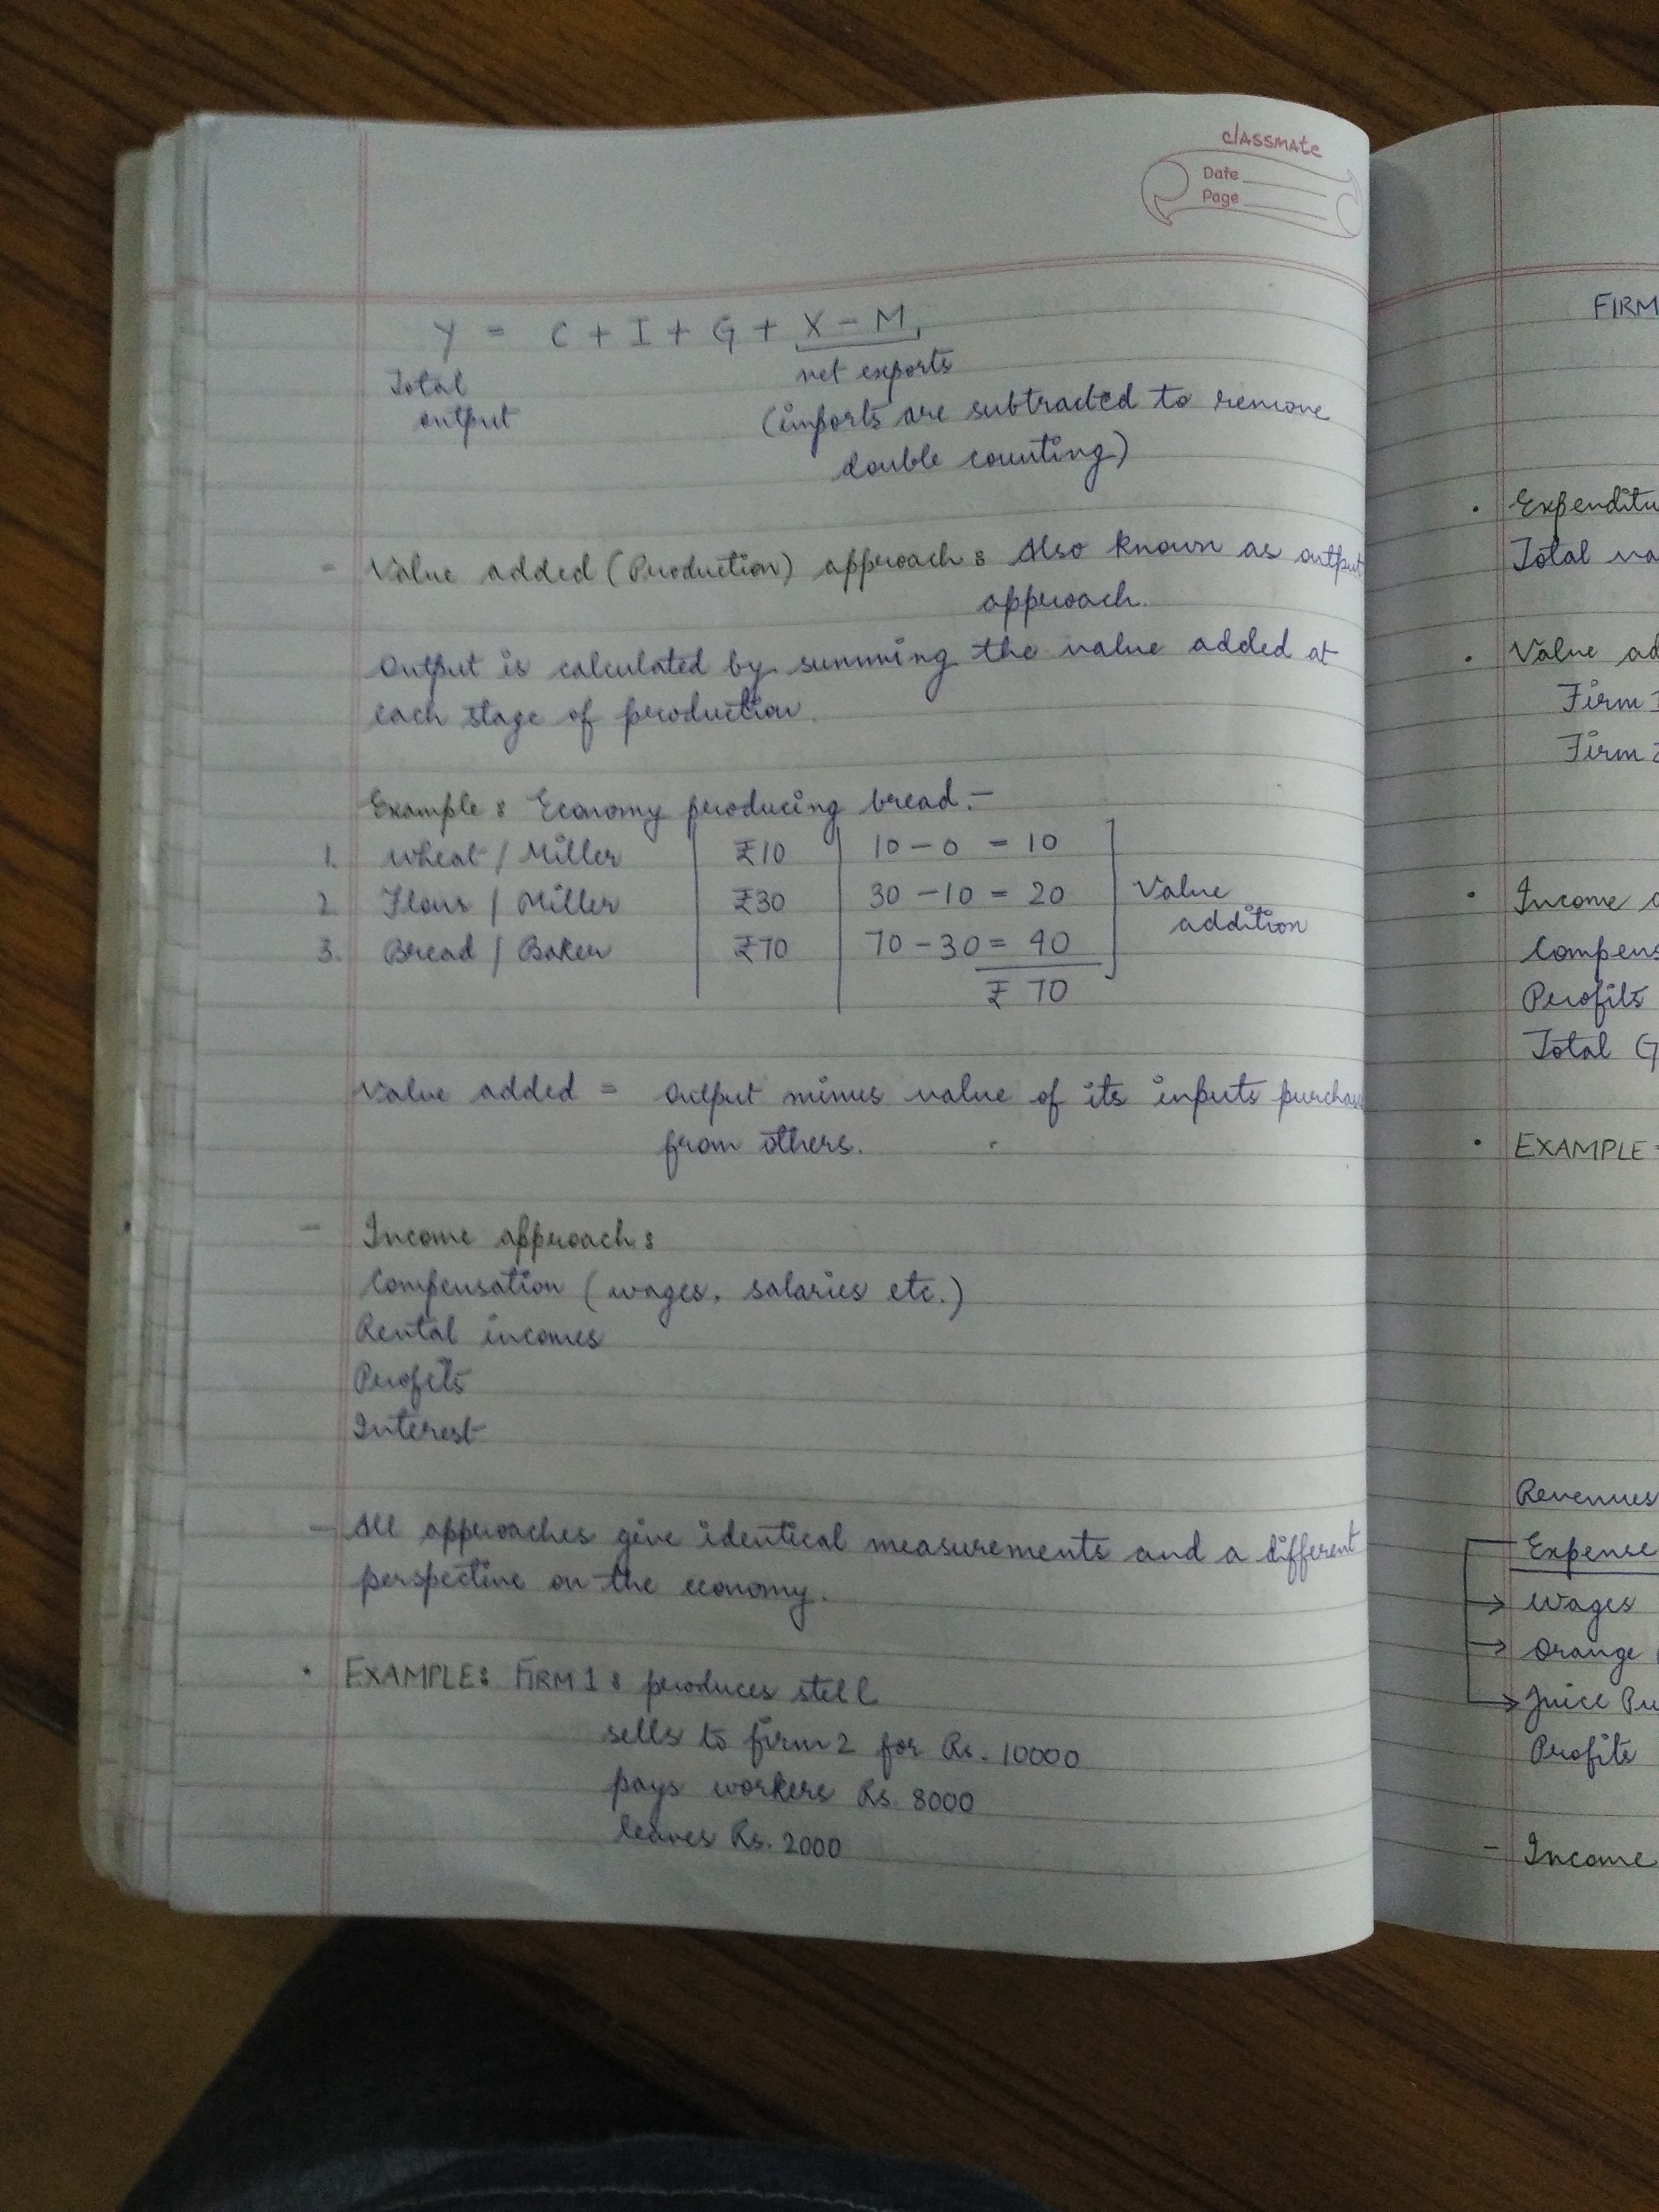 classmate
Date
Page
Y = C + I + G + X - M
Total output
net exports
(imports are subtracted to remove
double counting)
- Value added (Production) approach : Also known as output
approach.
Output is calculated by summing the value added at
each stage of production.
Example : Economy producing bread :-
1. Wheat / Miller ₹10 10 - 0 = 10
2. Flour / Miller ₹30 30 - 10 = 20
3. Bread / Baker ₹70 70 - 30 = 40
Value addition
₹ 70
Value added = Output minus value of its inputs
from others.
- Income approach :
Compensation (wages, salaries etc.)
Rental incomes
Profits
Interest
- All approaches give identical measurements and a different
perspective on the economy.
• EXAMPLE : FIRM 1 : produces steel
sells to firm 2 for Rs. 10000
pays workers Rs. 8000
leaves Rs. 2000
FIRM
• Expenditu
Total va
• Value ad
Firm 1
Firm 2
• Income a
Compens
Profits
Total G
• EXAMPLE
Revenues
Expense
→ Wages
→ Orange
→ Juice Pu
Profits
- Income